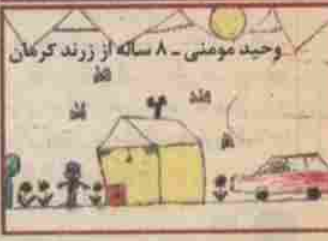 وحید مومنی ـ ۸ ساله از زرند کرمان